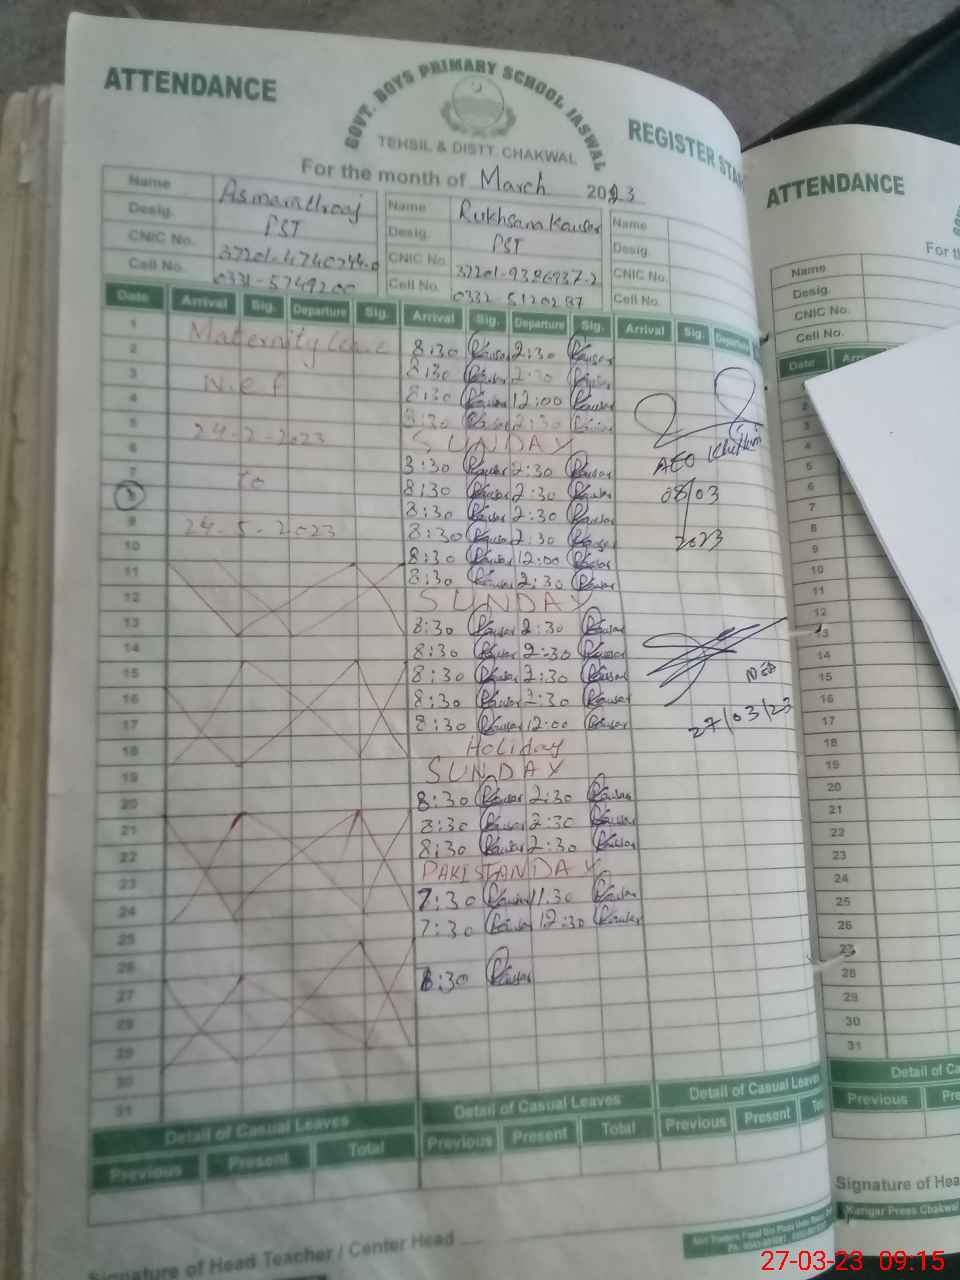 ATTENDANCE
GOVT. BOYS PRIMARY SCHOOL JASWAL
TEHSIL & DISTT. CHAKWAL
REGISTER
For the month of March 2023
Name Name Rukhsana Kausar Name
Desig. PST Desig. PST Desig.
CNIC No. CNIC No. CNIC No.
Cell No. 0331-5749200 Cell No. 0332-5120287 Cell No.
Date Arrival Sig. Departure Sig. Arrival Sig. Departure Sig. Arrival Sig. Departure
1 Maternity Leave 8:30 Kausar 2:30 Kausar
2 8:30 Kausar 2:30 Kausar
3 w.e.f 8:30 Kausar 12:00 Kausar
4 8:30 Kausar 2:30 Kausar
5 24-2-2023 SUNDAY
6 8:30 Kausar 2:30 Kausar
7 To 8:30 Kausar 2:30 Kausar
8 8:30 Kausar 2:30 Kausar
9 24-5-2023 8:30 Kausar 2:30 Kausar
10 8:30 Kausar 12:00 Kausar
11 8:30 Kausar 2:30 Kausar
12 SUNDAY
13 8:30 Kausar 2:30 Kausar
14 8:30 Kausar 2:30 Kausar
15 8:30 Kausar 2:30 Kausar
16 8:30 Kausar 2:30 Kausar
17 8:30 Kausar 12:00 Kausar
18 Holiday
19 SUNDAY
20 8:30 Kausar 2:30 Kausar
21 8:30 Kausar 2:30 Kausar
22 8:30 Kausar 2:30 Kausar
23 PAKISTAN DAY
24 7:30 Kausar 11:30 Kausar
25 7:30 Kausar 12:30 Kausar
26
27 8:30 Kausar
28
29
30
31
AEO
08/03
2023
27/03/23
Detail of Casual Leaves Detail of Casual Leaves Detail of Casual Leaves
Previous Present Total Previous Present Total Previous Present
Signature of Head Teacher / Center Head
ATTENDANCE
Name
Desig.
CNIC No.
Cell No.
Date
3
4
5
6
7
8
9
10
11
12
13
14
15
16
17
18
19
20
21
22
23
24
25
26
27
28
29
30
31
Previous
Signature of
Kangar Press
27-03-23 09:15